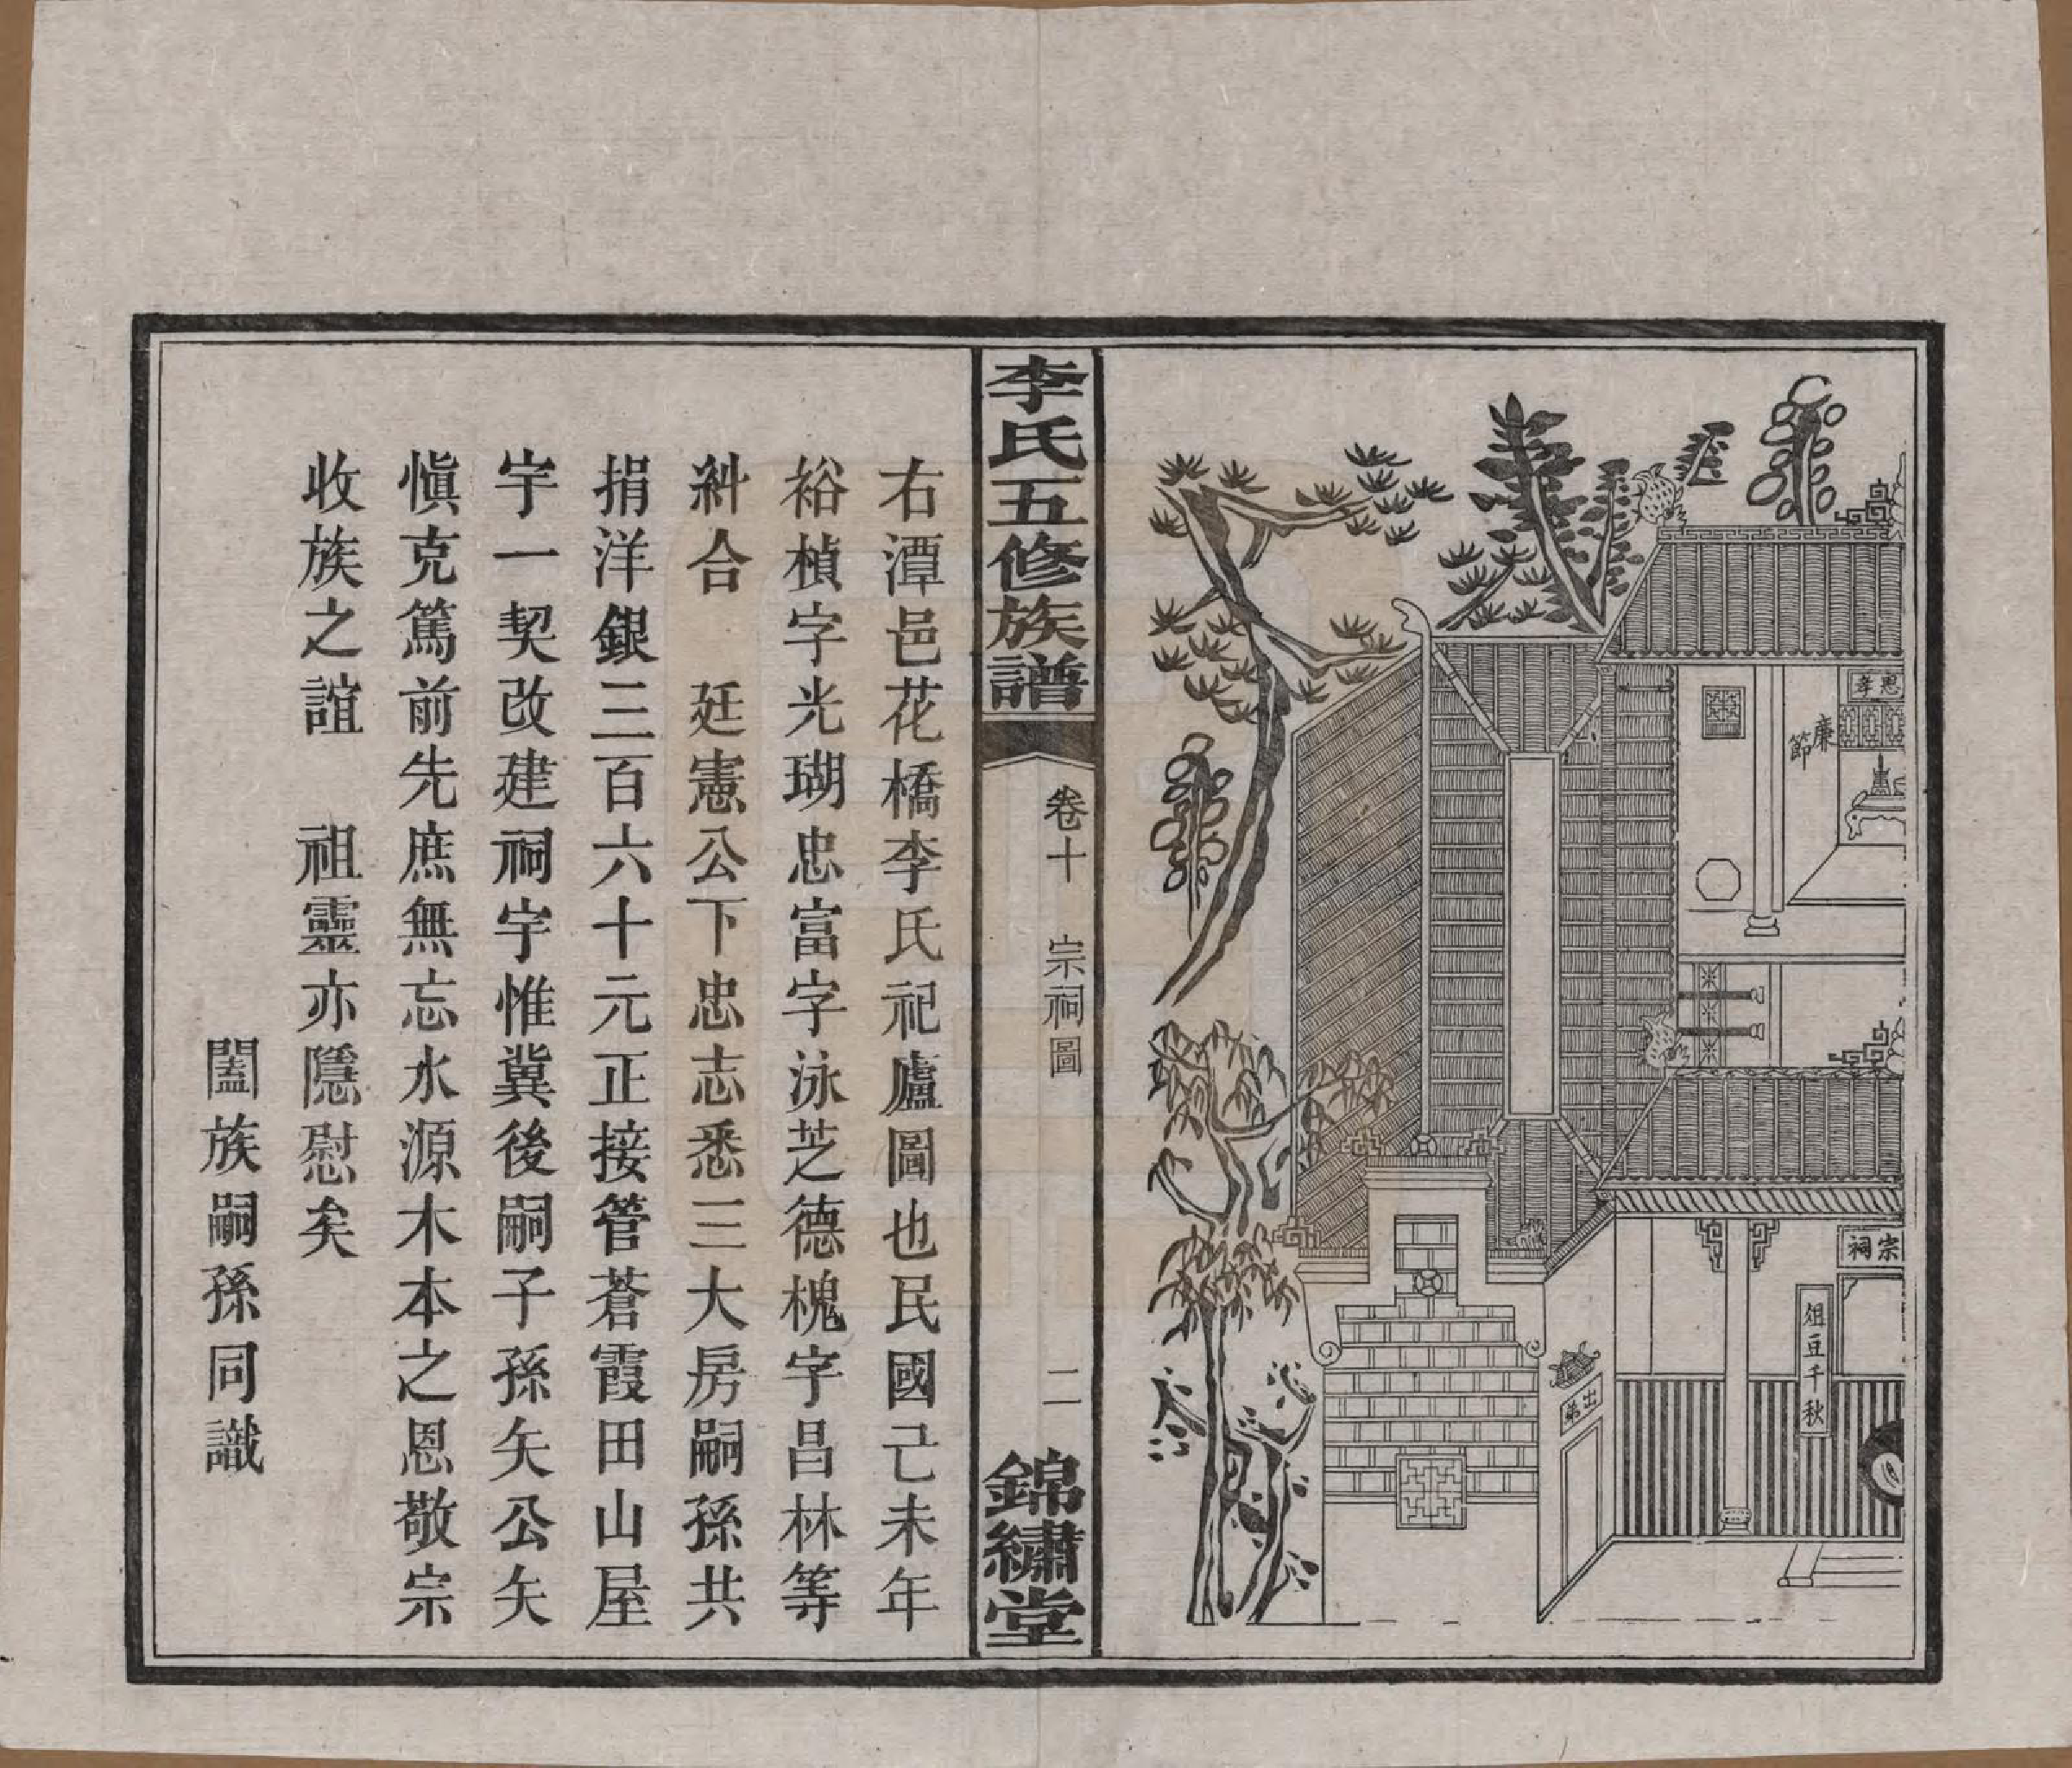 孝思
廉
節
宗祠
俎豆千秋
出弟
李氏五修族譜
卷十 宗祠圖
二
錦繡堂
右潭邑花橋李氏祀廬圖也民國己未年
裕楨字光瑚忠富字泳芝德槐字昌林等
糾合 廷憲公下忠志悉三大房嗣孫共
捐洋銀二百六十元正接管蒼霞田山屋
宇一契改建祠宇惟冀後嗣子孫矢公矢
愼克篤前先庶無忘水源木本之恩敬宗
收族之誼 祖靈亦隱慰矣
闔族嗣孫同識